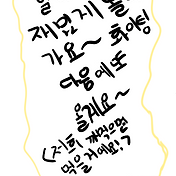 을
재밌게 놀
가요~ 화이팅
다음에도
올게요~
(저희 깨먹으면
먹을거예요!?